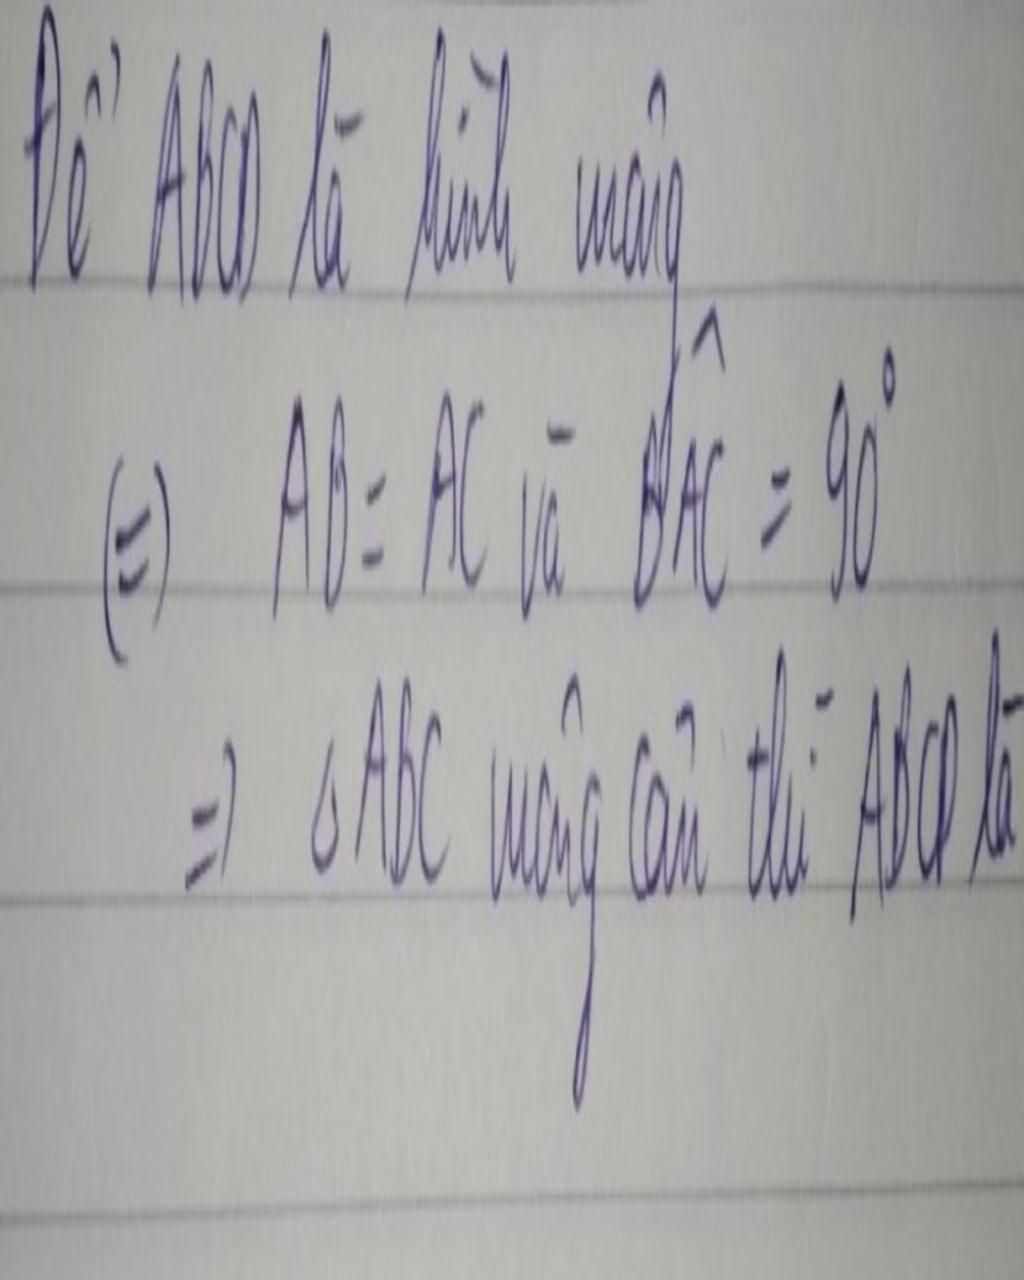 Để ABCD là hình vuông
(=) AB = AC và BAC = 90°
=) △ABC vuông cân thì ABCD là